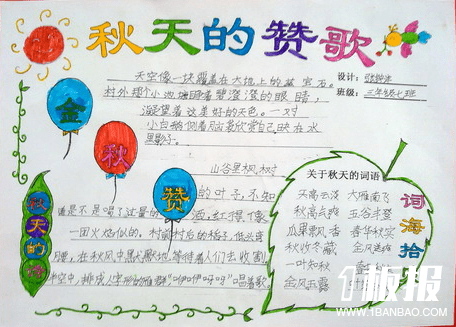 秋天的赞歌
天空像一块覆盖在大地上的蓝宝石。
村外那个小池塘睁着碧澄澄的眼睛，
凝望着这美好的天色。一对
小白鹅侧着脑袋欣赏自己映在水
里影子。
设计：
班级：三年级七班
金
秋
赞
山谷里枫树
的叶子，不知
道是不是喝了过量的酒，红得像
一团火焰似的。村前村后的稻子，低着
腰，在秋风中默默地等待着人们去收割
半空中，排成人字形的雁群"咿咿呀呀"唱着歌。
秋天的诗
关于秋天的词语
天高云淡 大雁南飞
秋高气爽 五谷丰登
瓜果飘香 春华秋实
秋收冬藏 金风送爽
一叶知秋
金风玉露
词海拾
1板报
WWW.1BANBAO.COM